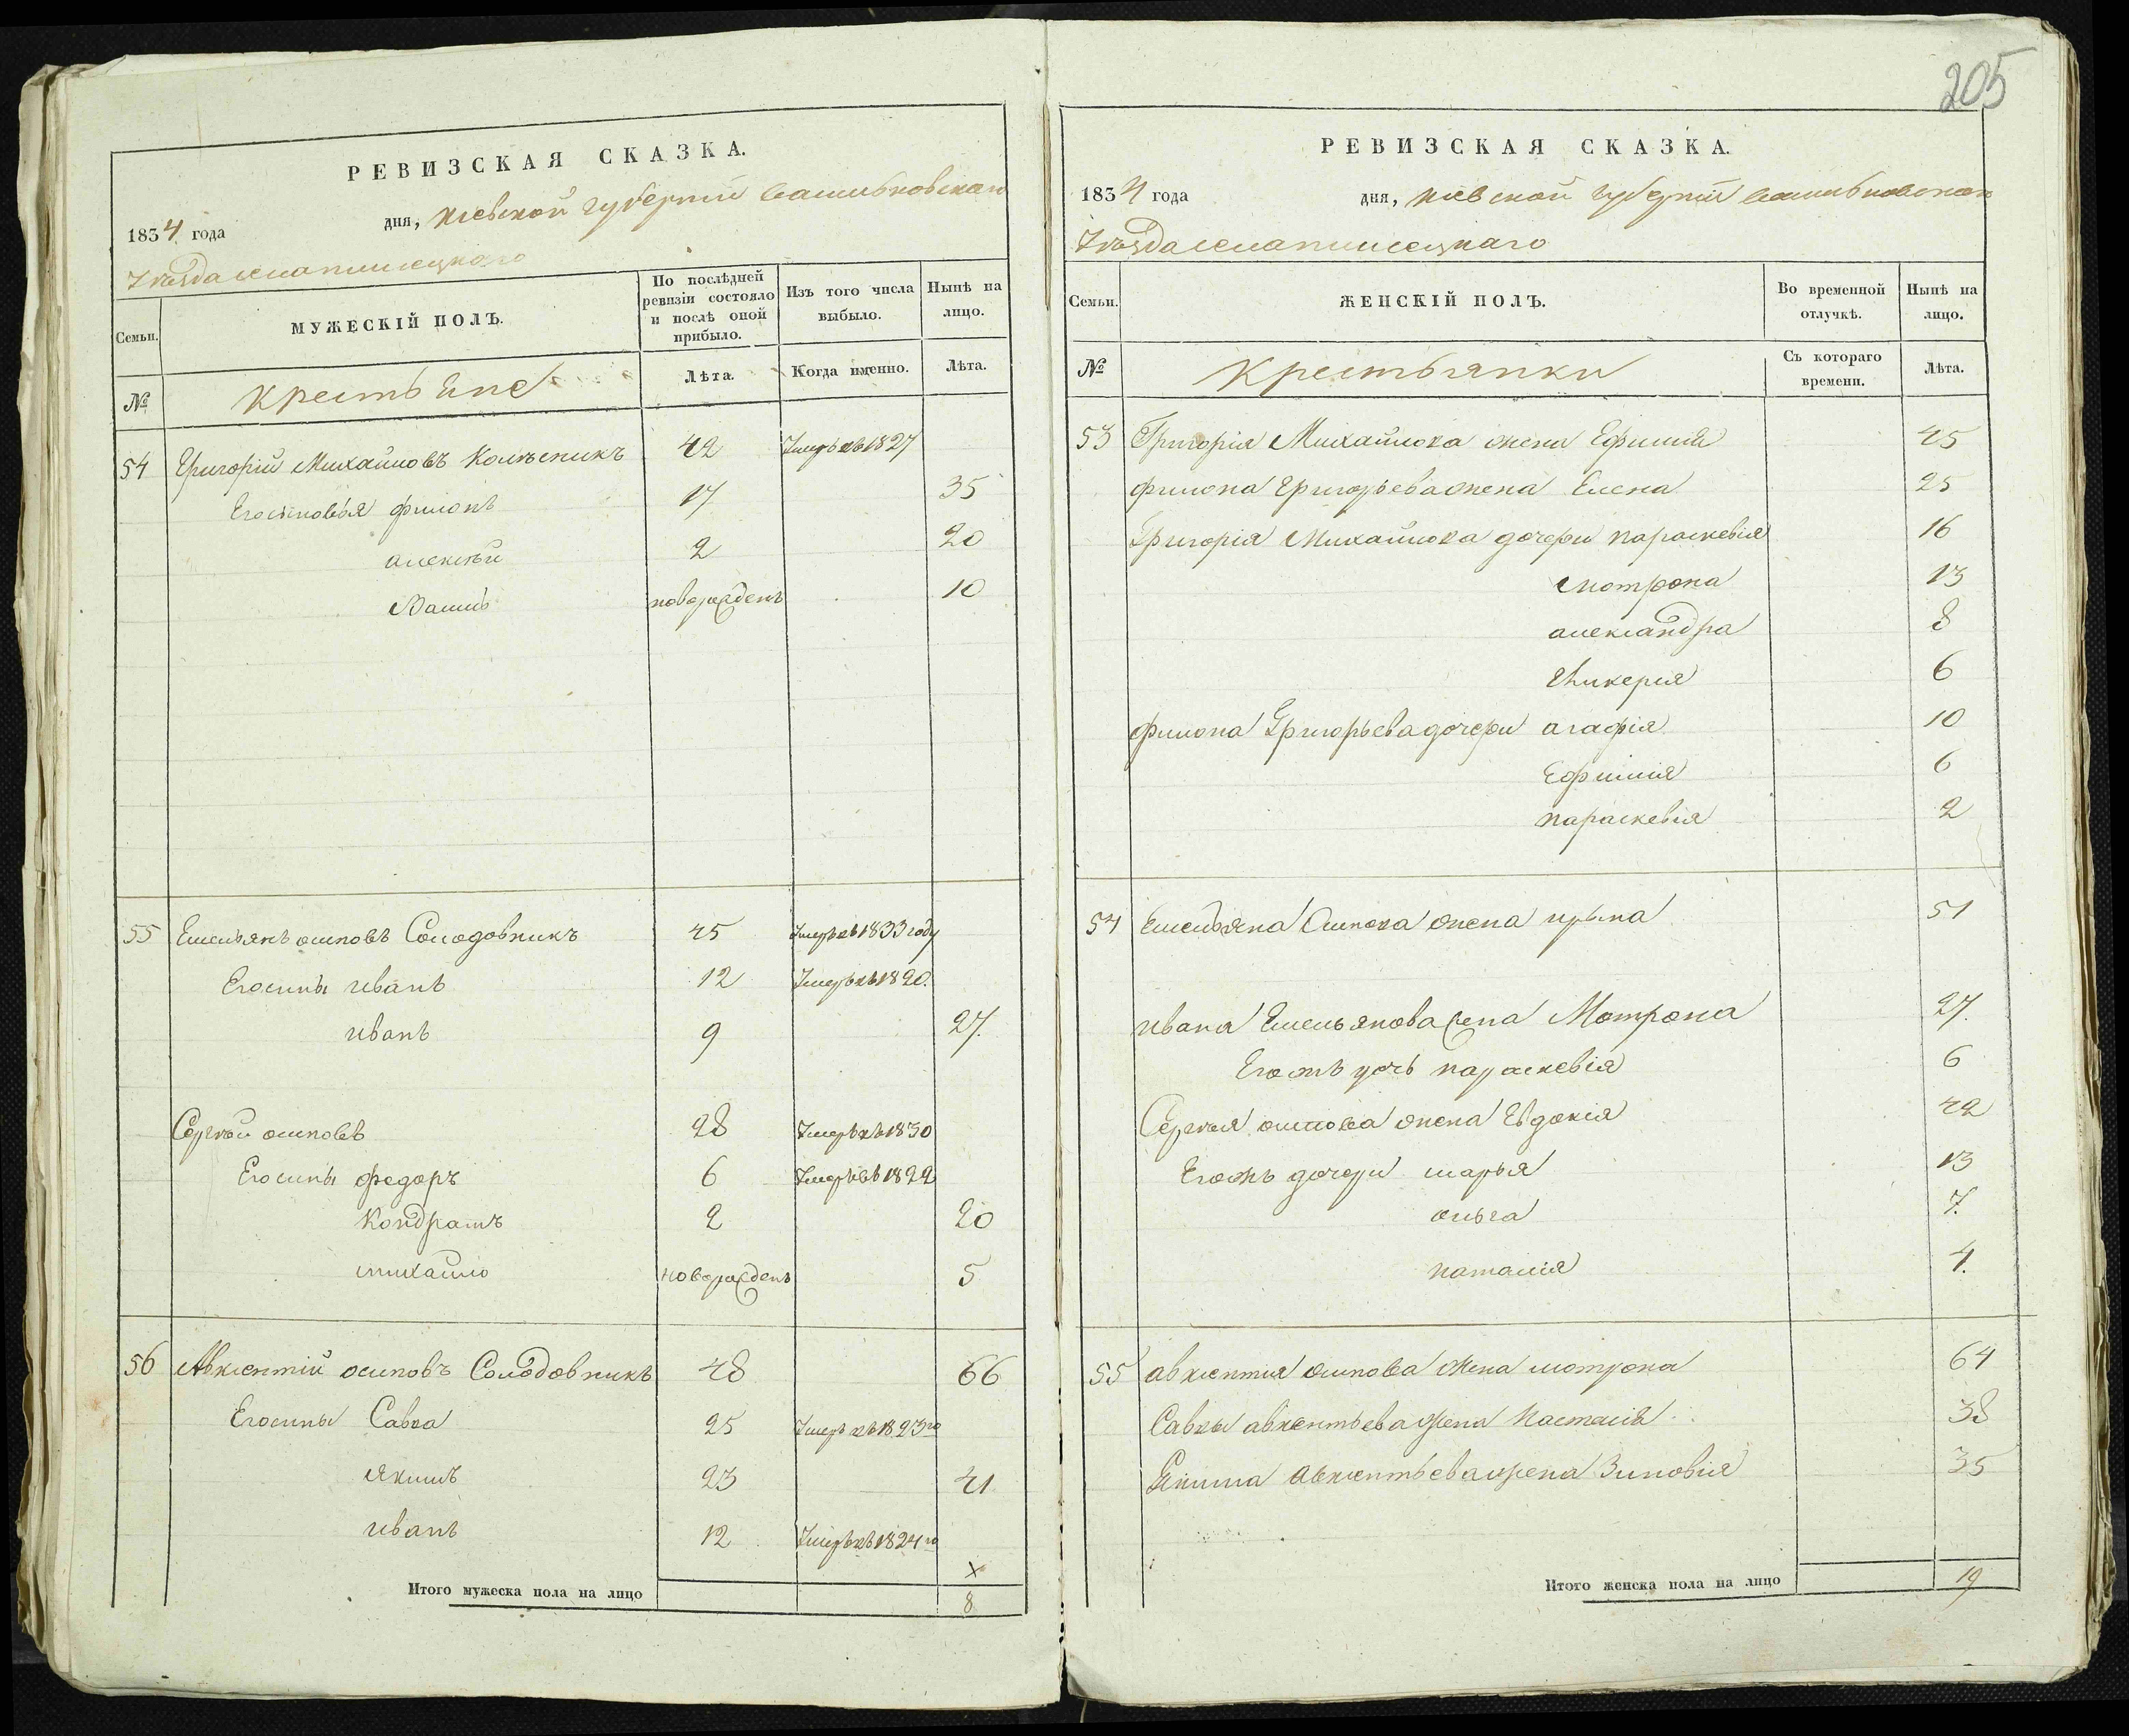 205
РЕВИЗСКАЯ СКАЗКА.
1834 года дня, Киевской губернии Васильковскаго
Уѣзда села
Семьи. МУЖЕСКІЙ ПОЛЪ. По послѣдней ревизіи состояло и послѣ оной прибыло. Изъ того числа выбыло. Нынѣ на лицо.
№ Крестьяне Лѣта. Когда именно. Лѣта.
54 Григорій Михайловъ Колѣсникъ 42 Умеръ въ 1827
Его сыновья филонъ 17 35
алексѣй 2 20
Василь новорожденъ 10
55 Емельянъ осиповъ Солодовникъ 45 Умеръ въ 1833 году
Его сыны иванъ 12 Умеръ въ 1820.
иванъ 9 27.
Сергѣй осиповъ 28 Умеръ въ 1830
Его сыны федоръ 6 Умеръ въ 1822
Кондратъ 2 20
михайло новорожденъ 5
56 Авксентій осиповъ Солодовникъ 48 66
Его сыны Савка 25 Умеръ въ 1823го
якимъ 23 41
иванъ 12 Умеръ въ 1824го
х
Итого мужеска пола на лицо 8
РЕВИЗСКАЯ СКАЗКА.
1834 года дня, Киевской губернии Васильковскаго
Уѣзда села
Семьи. ЖЕНСКІЙ ПОЛЪ. Во временной отлучкѣ. Нынѣ на лицо.
№ Крестьянки Съ котораго времени. Лѣта.
53 Григорія Михайлова жена Ефимия 45
филона Григорьева жена Елена 25
Григорія Михайлова дочери параскевія 16
мотрона 13
александра 8
гликерия 6
филона Григорьева дочери агафія 10
Ефимия 6
параскевія 2
54 Емельяна Осипова жена ирына 51
ивана Емельянова жена Мотрона 27.
Его жъ дочь параскевія 6
Сергѣя осипова жена Евдокія 42
Его жъ дочери марья 13
ольга 7.
наталия 4.
55 авксентия осипова жена мотрона 64
Савки авксентьева жена Настасія 38
Якима авксентьева жена Зиновия 35
Итого женска пола на лицо 19